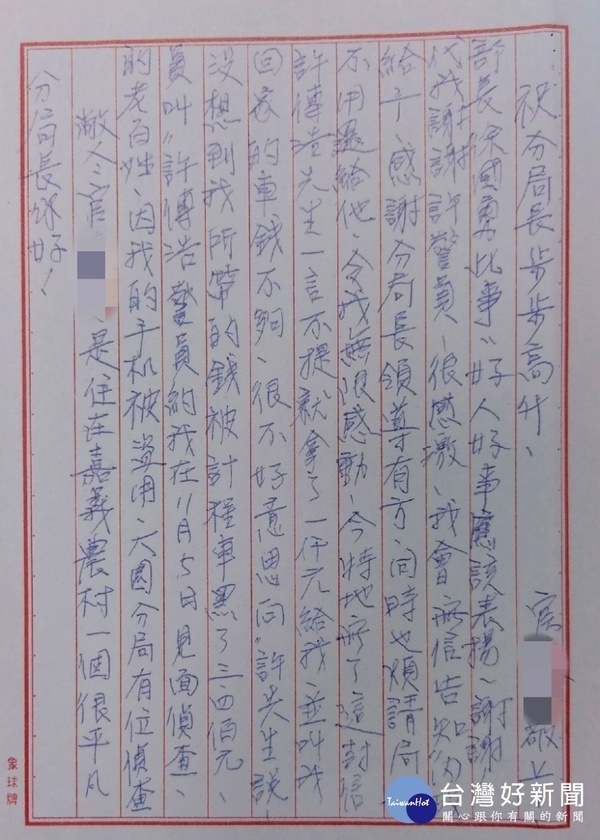 分局長你好！
敝人官 是住在嘉義農村一個很平凡
的老百姓、因我的手机被盜用、大園分局有位偵查
員叫"許傳浩警員約我在11月5日見面偵查、
沒想到我所帶的錢被計程車黑了三四佰元、
回家的車錢不夠、很不好意思向"許先生說、
許傳浩先生一言不提就拿了一仟元給我、並叫我
不用還給他、令我無限感動、今特地寫了這封信
給予、感謝分局長領導有方、同時也煩請局
代我謝謝許警員、很感激、我會寫信告知內政
部長徐國勇此事"好人好事應該表揚、謝謝
祝分局長步步高升、
官 敬上
象球牌
TaiwanHot
台灣好新聞
關心跟你有關的新聞